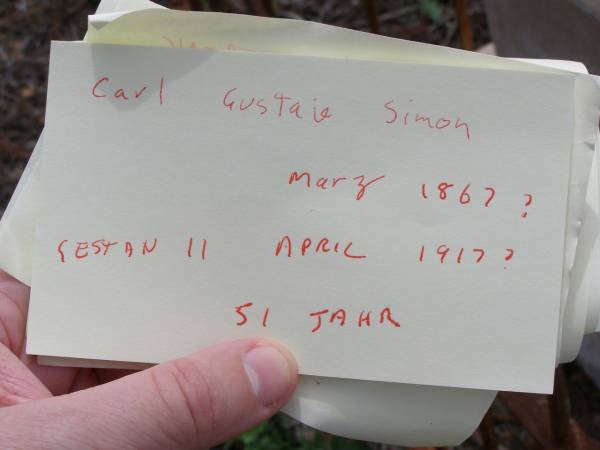 Carl Gustave Simon
Marz 1867?
GESTAN 11 APRIL 1917?
51 JAHR